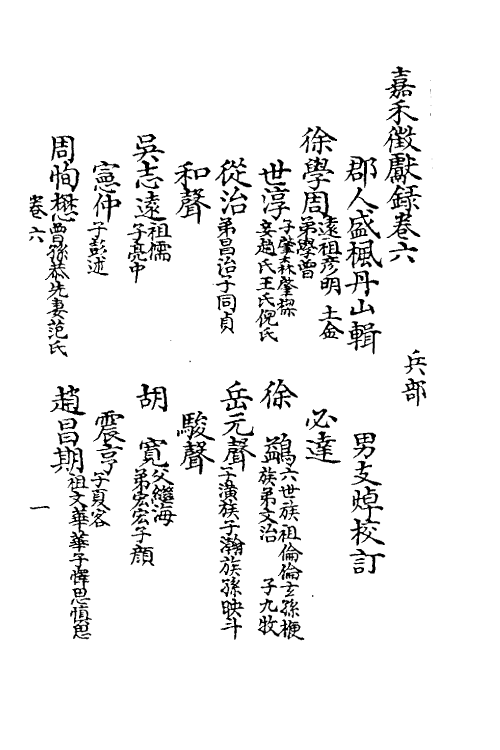 嘉禾徵獻錄卷六
兵部
郡人盛楓丹山輯
男支焯校訂
徐學周遠祖彥明 士金
弟學曾
必達
世淳子肇森肇樑
妾趙氏王氏倪氏
徐 鷀六世族祖倫倫玄孫梗
族弟文治 子九牧
從治弟昌治子同貞
岳元聲子潢族子瀚族孫映斗
和聲
駿聲
吳志遠祖儒
子亮中
胡 寬父繼海
弟宏宏子顏
憲仲子彭述
震亨子夏客
周恂懋曾孫恭先妻范氏
趙昌期祖文華華子懌思慎思
卷六
一